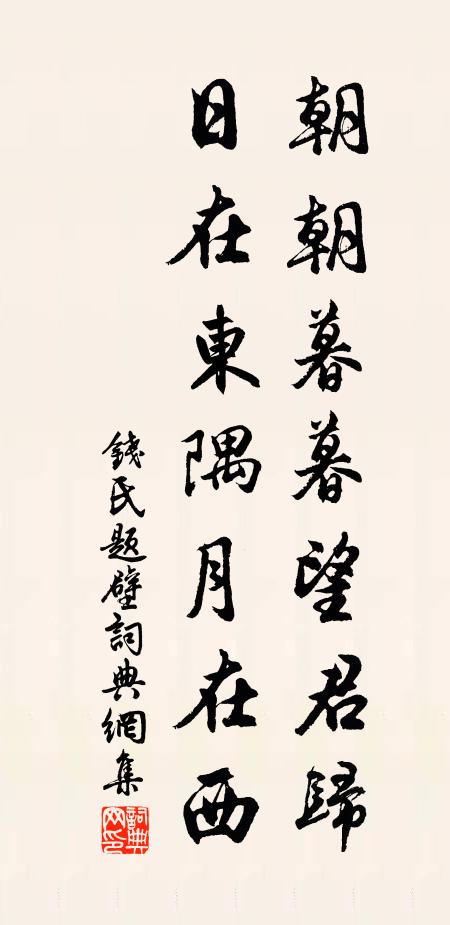 朝朝暮暮望君歸
日在東隅月在西
錢氏題壁詞典網集
詞典网印